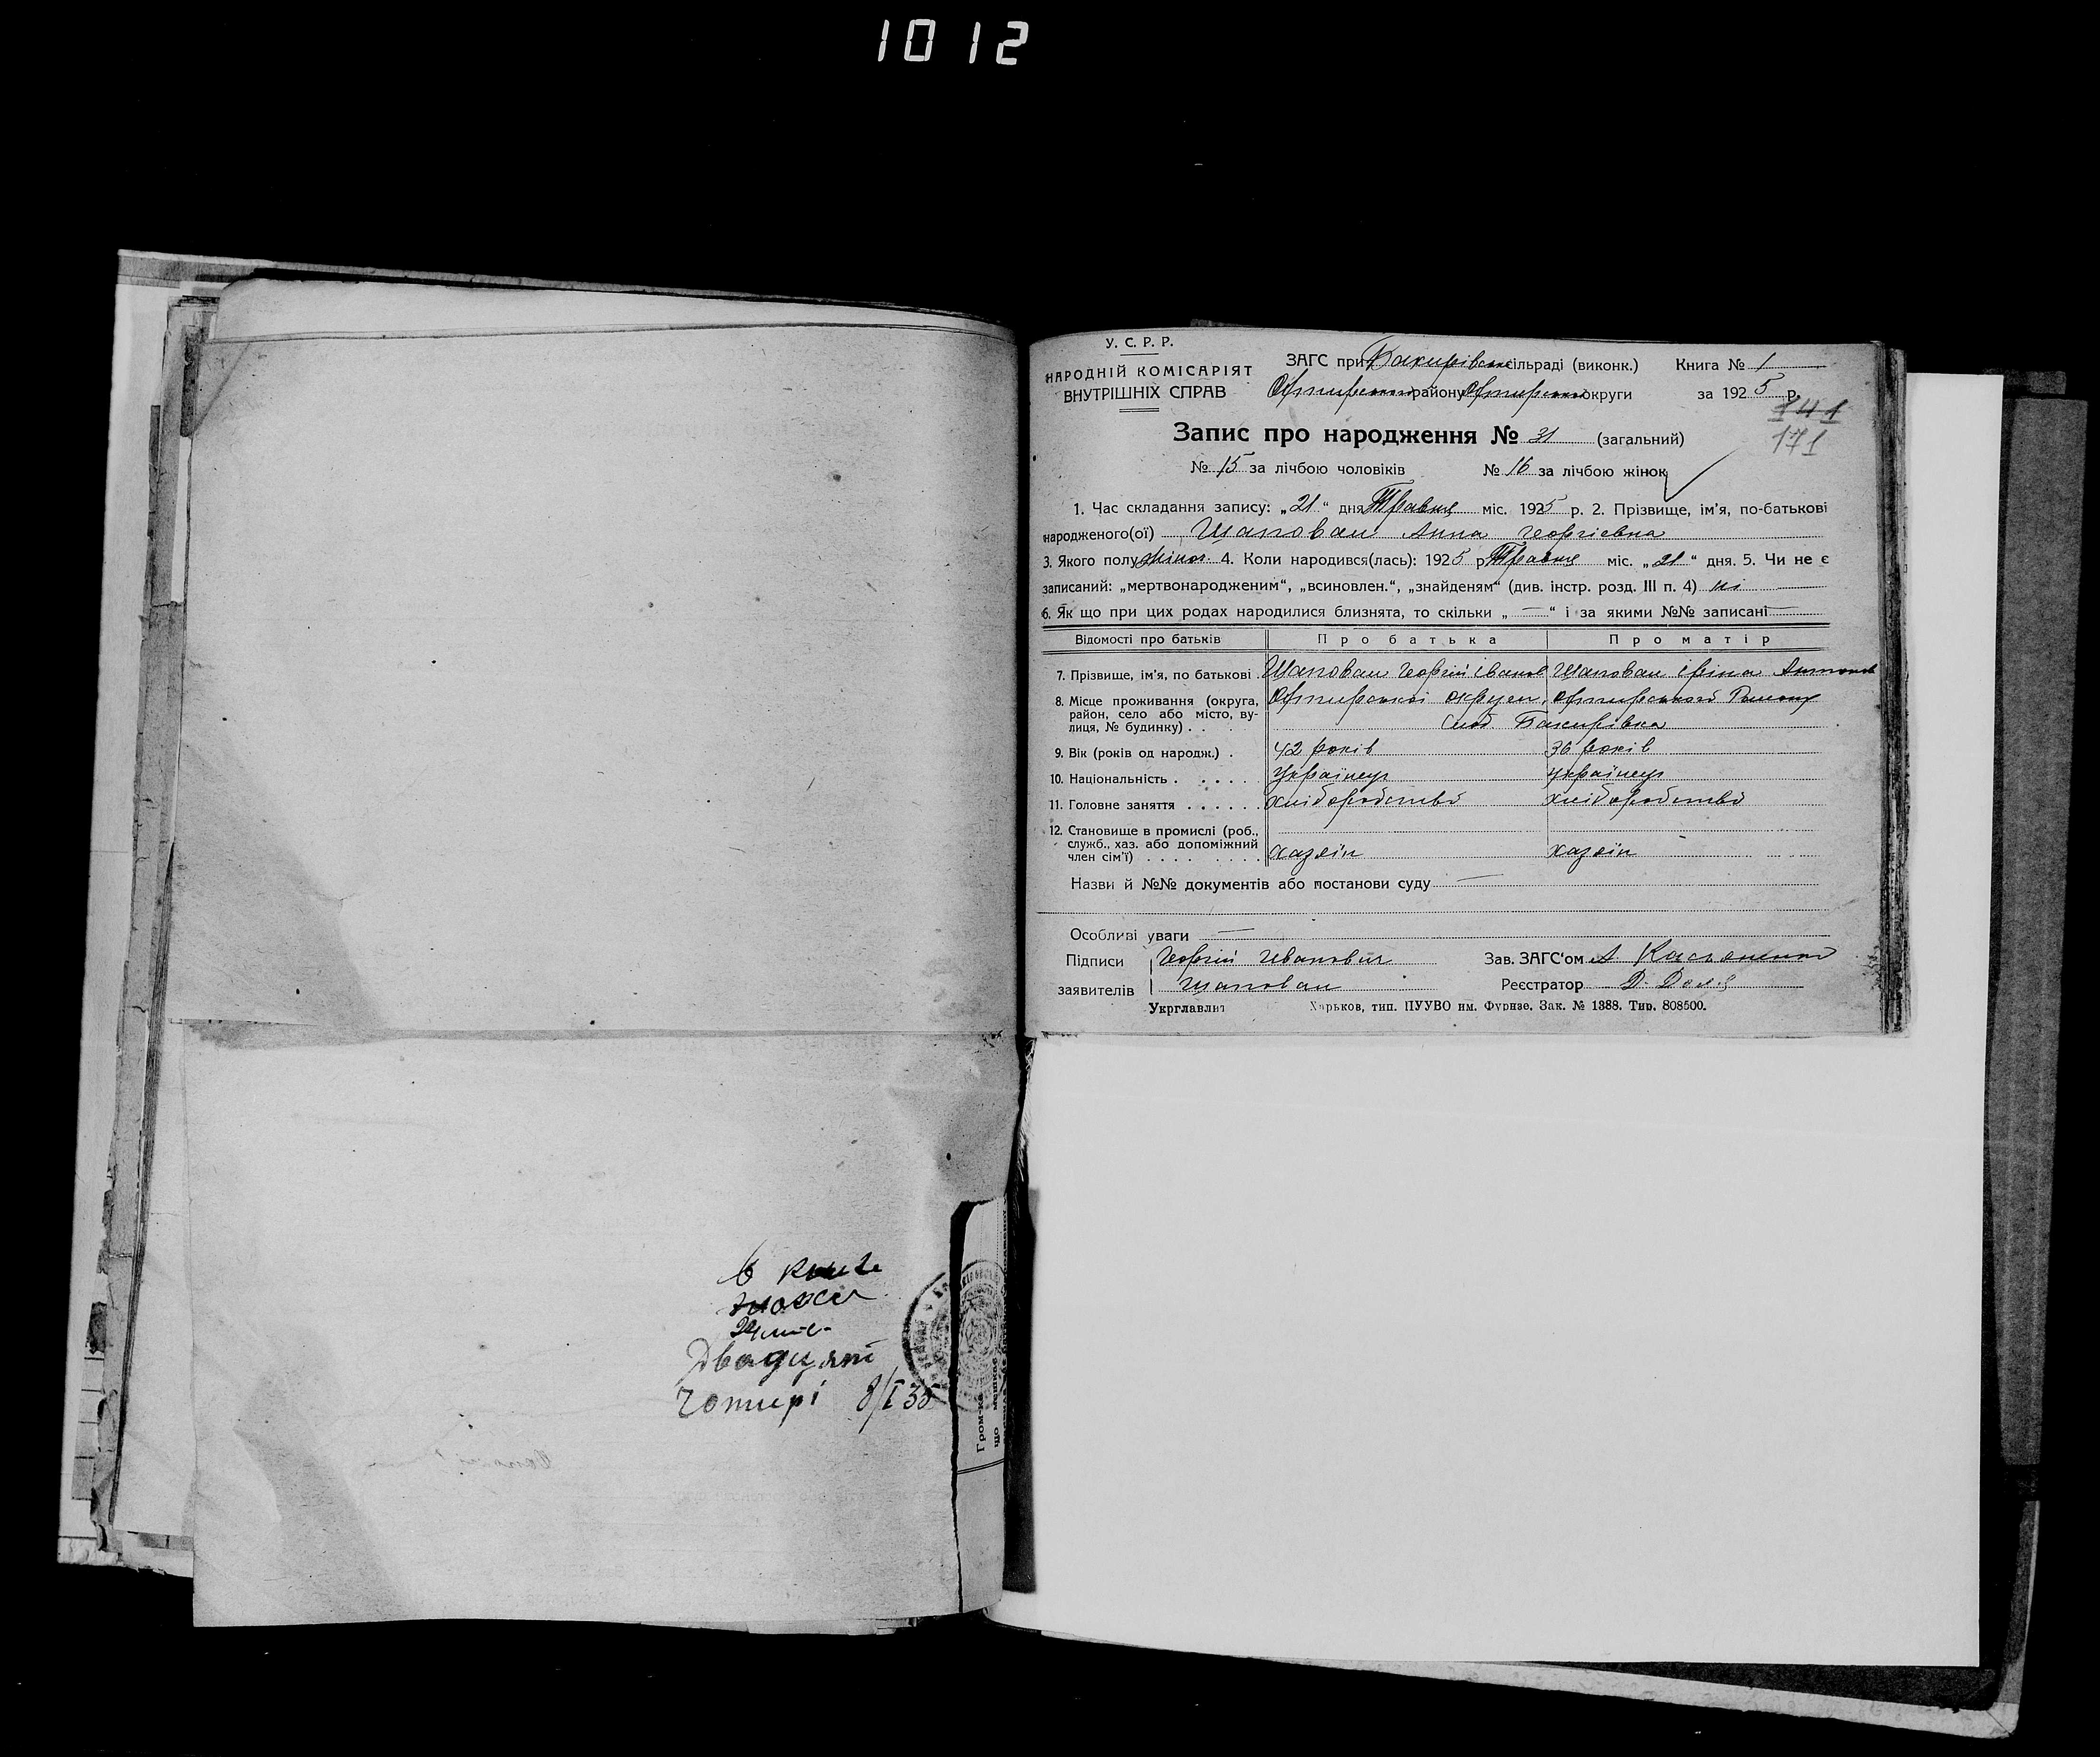 1012
В книге
24
Двадцят
чотирі 8/I 35
Гром-ка
що мешкає
У. С. Р. Р.
НАРОДНІЙ КОМІСАРІЯТ
ВНУТРІШНІХ СПРАВ
ЗАГС при Бакирівськ сільраді (виконк.) Книга № 1
Охтирськ району Охтирськ округи за 1925 р.
141
171
Запис про народження № 31 (загальний)
№ 15 за лічбою чоловіків № 16 за лічбою жінок
1. Час складання запису: „21“ дня Травня міс. 1925 р. 2. Прізвище, ім'я, по-батькові
народженого(ої) Шаповал Анна Георгіевна
3. Якого полу жіноч. 4. Коли народився(лась): 1925 р Травня міс. „21“ дня. 5. Чи не є
записаний: „мертвонародженим“, „всиновлен.“, „знайденям“ (див. інстр. розд. III п. 4) ні
6. Як що при цих родах народилися близнята, то скільки „—“ і за якими №№ записані —
Відомості про батьків Про батька Про матір
7. Прізвище, ім'я, по батькові Шаповал Георгій Іванов Шаповал Іріна Антонов
8. Місце проживання (округа, Охтирської округи, Охтирського Району
район, село або місто, ву-
лиця, № будинку) . . Слоб. Бакирівка
9. Вік (років од народж.) . 42 років 36 років
10. Національність . . . . . Українец українец
11. Головне заняття . . . . . . хліборобство хліборобство
12. Становище в промислі (роб.,
служб., хаз. або допоміжний
член сім'ї) . . . . . . . . хазяїн хазяїн
Назви й №№ документів або постанови суду —
Особливі уваги —
Підписи Георгій Иванович Зав. ЗАГС'ом А Касьяненко
заявителів Шаповал Реєстратор Д.
Укрглавлит Харьков, тип. ПУУВО им. Фрунзе. Зак. № 1388. Тир. 808500.